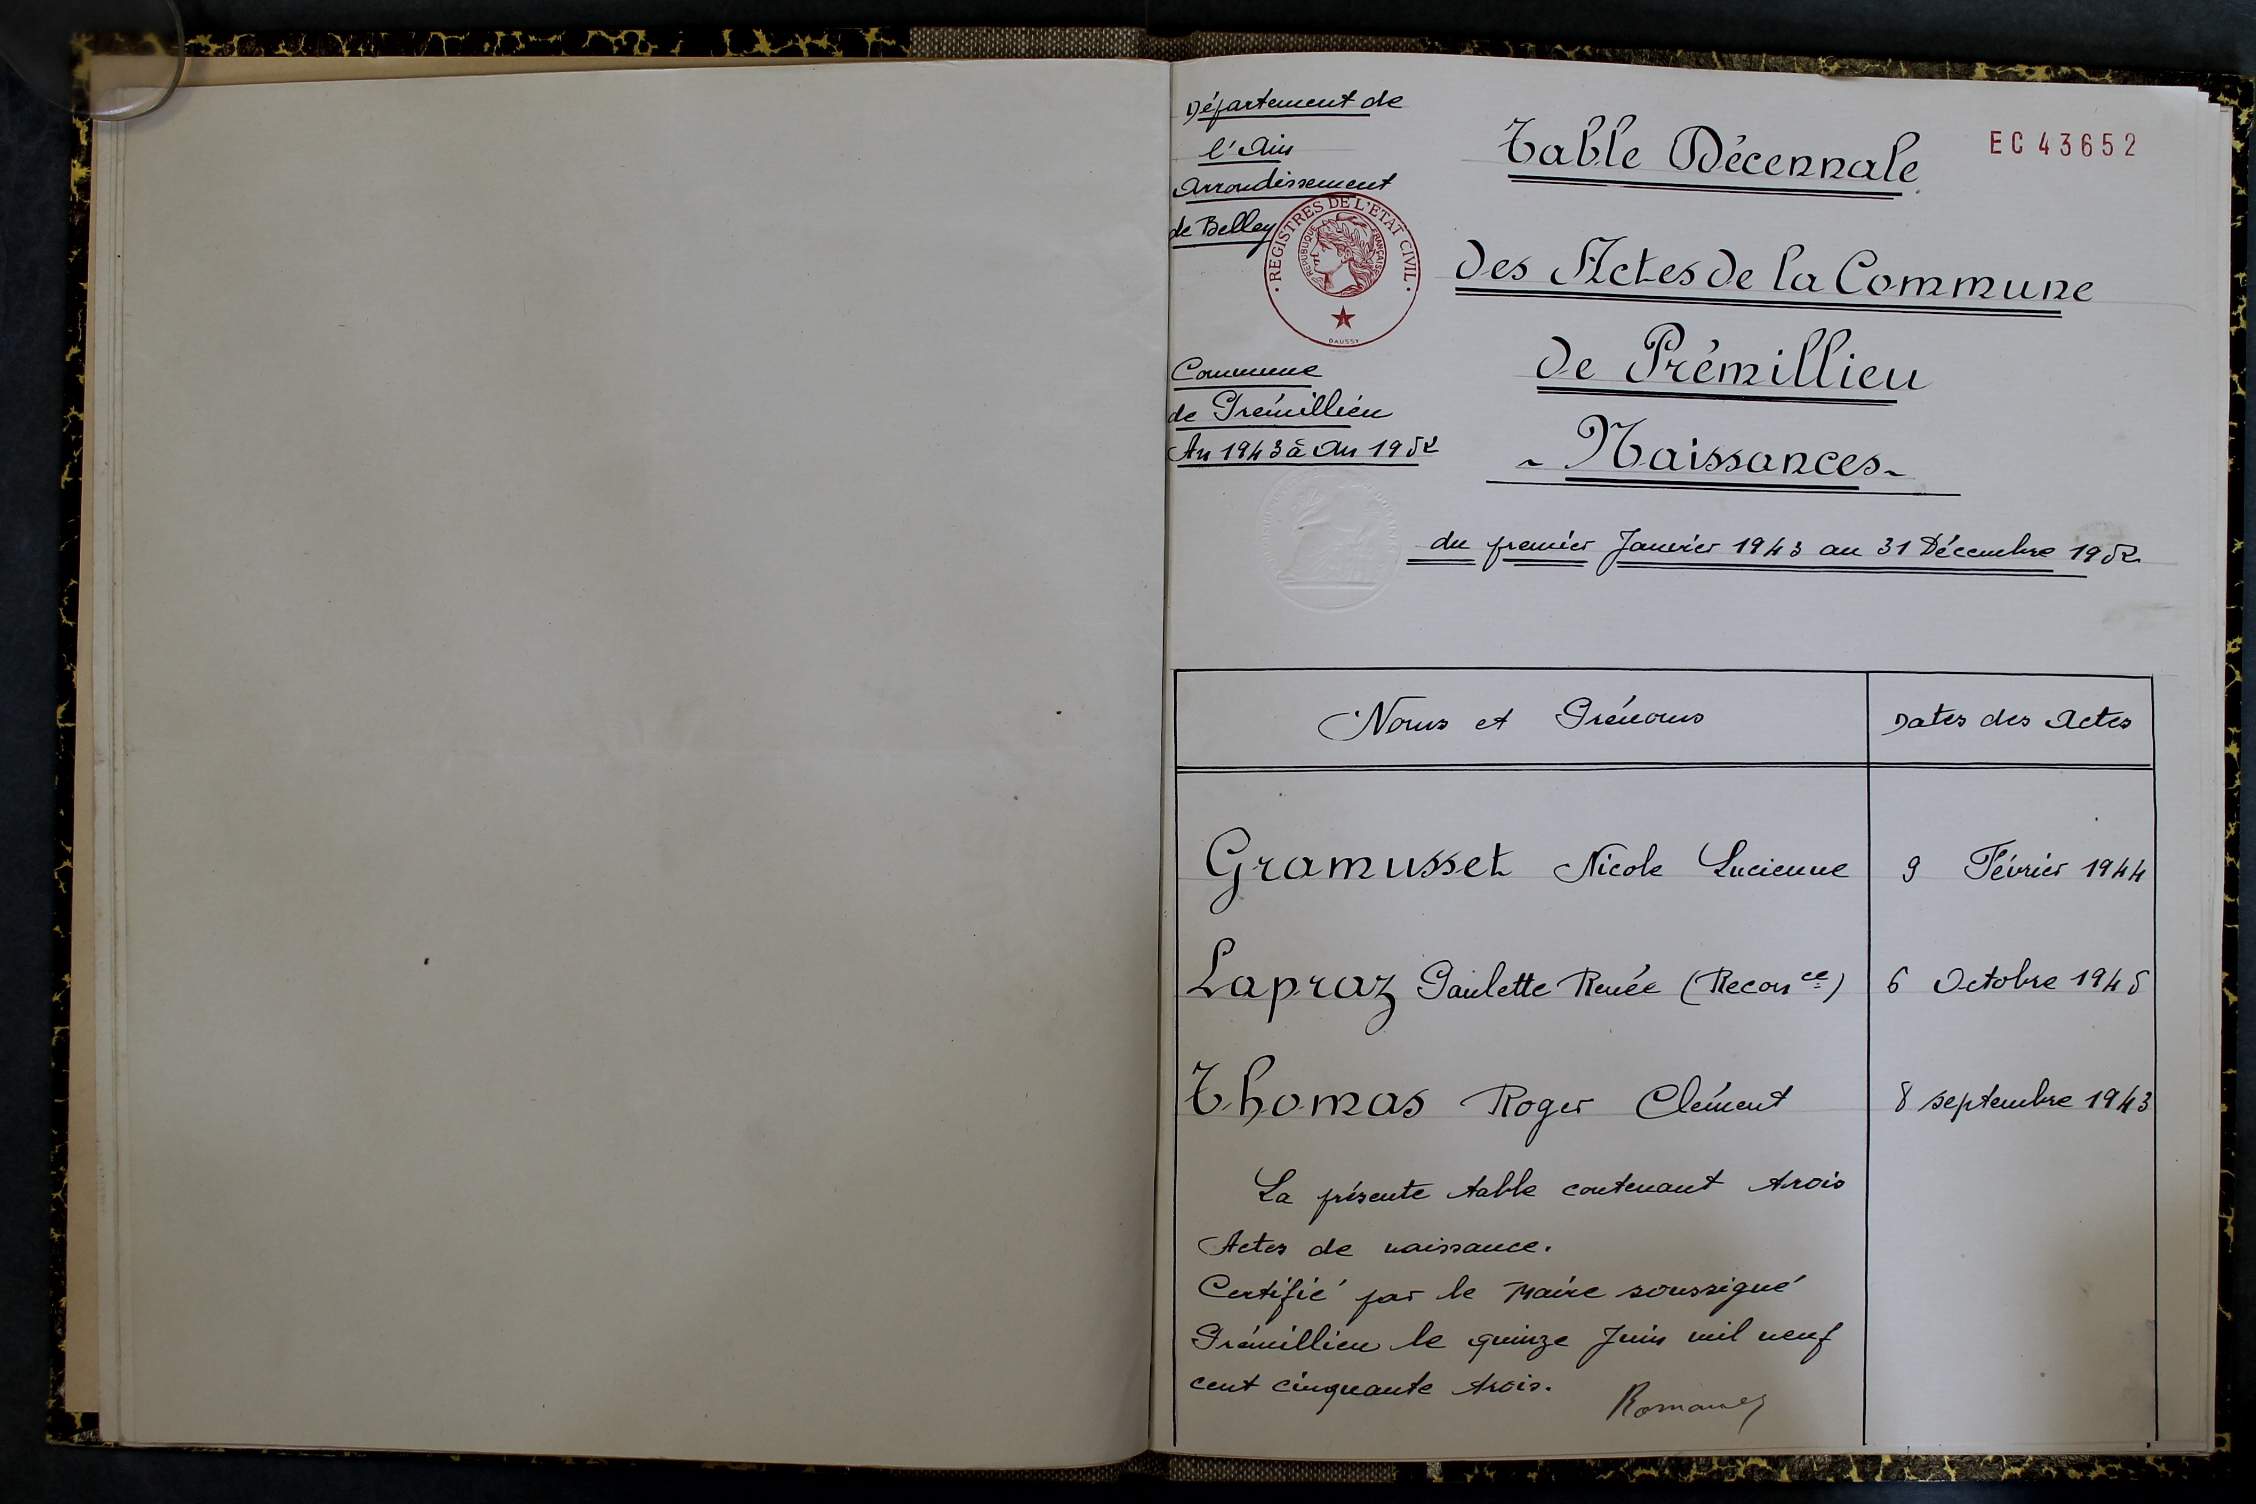 Département de
l'Ain
Arrondissement
de Belley
REGISTRES DE L'ETAT CIVIL
REPUBLIQUE FRANÇAISE
DAUSSY
Commune
de Prémillieu
An 1943 à An 1952
Table Décennale
EC 43652
des Actes de la Commune
de Prémillieu
~ Naissances ~
du premier Janvier 1943 au 31 Décembre 1952
Noms et Prénoms Dates des Actes
Gramusset Nicole Lucienne 9 Février 1944
Lapraz Paulette Renée (Reconce) 6 Octobre 1945
Thomas Roger Clément 8 septembre 1943
La présente table contenant trois
Actes de naissance.
Certifié par le Maire soussigné
Prémillieu le quinze Juin mil neuf
cent cinquante trois.